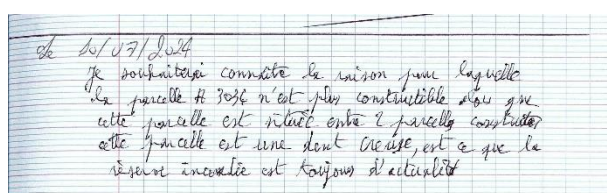 Le 10/07/2024
Je souhaiterai connaître la raison pour laquelle
la parcelle A 3036 n'est plus constructible alors que
cette parcelle est située entre 2 parcelles construites
cette parcelle est une dent creuse, est ce que la
réserve incendie est toujours d'actualité